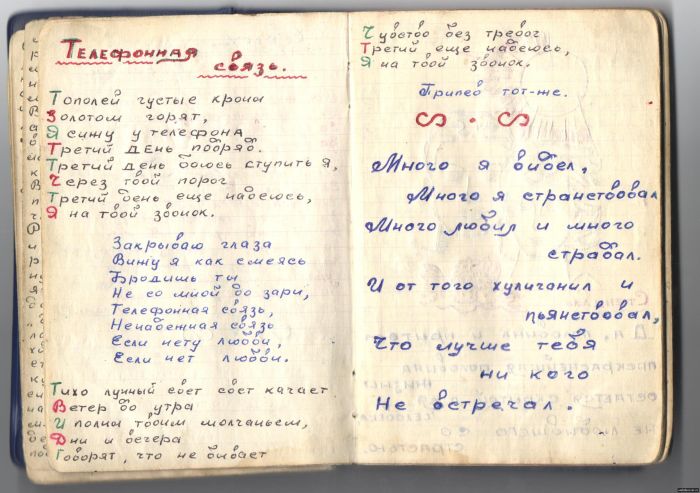 Телефонная
связь.
Тополей густые крони
Золотом горят,
Я сижу у телефона
Третий день подряд.
Третий день боюсь ступить я,
Через твой порог
Третий день еще надеюсь,
Я на твой звонок.
Закрываю глаза
Вижу я как смеясь
Бродишь ты
Не со мной до зари,
Телефонная связь,
Ненадежная связь
Если нету любви,
Если нет любви.
Тихо лунный свет свет качает
Ветер до утра
И полны твоим молчаньем,
Дни и вечера
Говорят, что не бывает
Чувство без тревог
Третий еще надеюсь,
Я на твой звонок.
Припев тот-же.
Много я видел,
Много я странствовал
Много любил и много
страдал.
И от того хулиганил и
пьянствовал,
Что лучше тебя
ни кого
Не встречал.